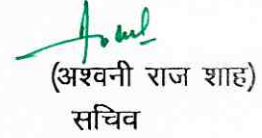 (अश्वनी राज शाह)
सचिव